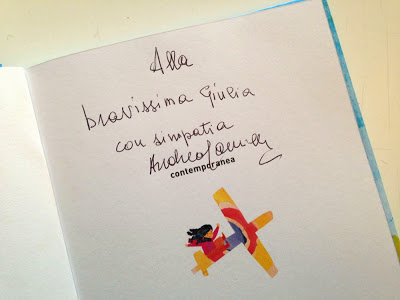 Alla
bravissima Giulia
con simpatia
Andrea Camilleri
contemporanea